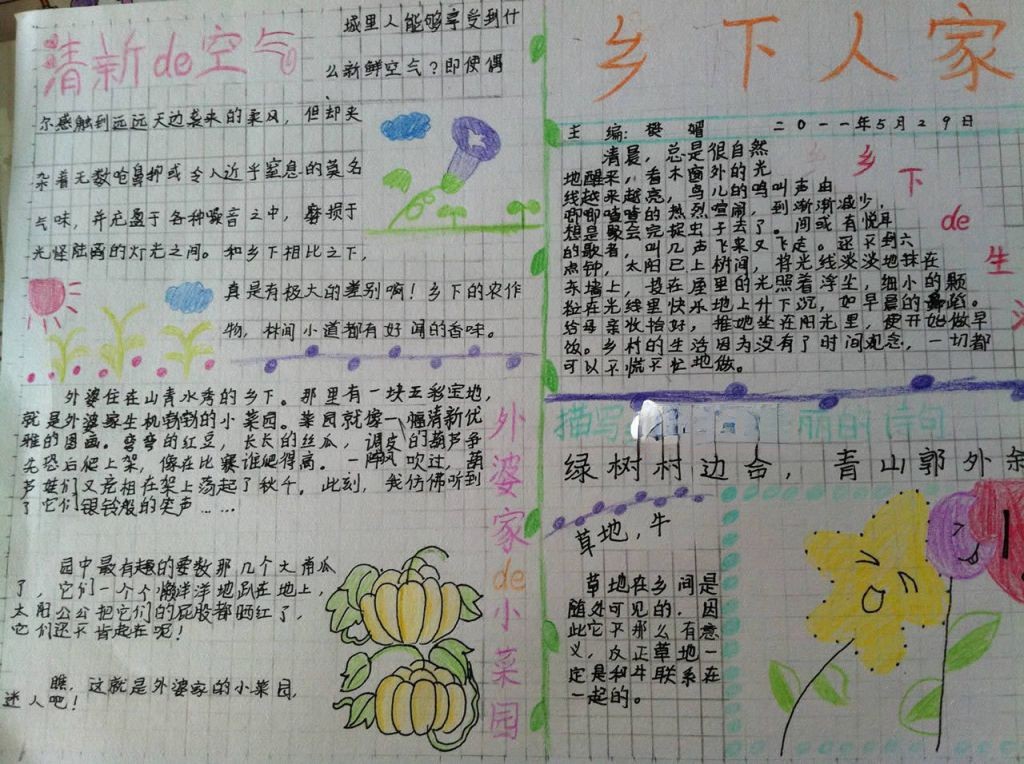 清新de空气
城里人能够享受到什
么新鲜空气？即使偶
尔感触到远远天边袭来的柔风，但却夹
杂着无数呛鼻抑或令人近乎窒息的莫名
气味，并充盈于各种噪音之中，磨损于
光怪陆离的灯光之间。和乡下相比之下，
真是有极大的差别啊！乡下的农作
物，林间小道都有好闻的香味。
外婆住在山青水秀的乡下。那里有一块五彩宝地，
就是外婆家生机勃勃的小菜园。菜园就像一幅清新优
雅的图画。弯弯的红豆，长长的丝瓜，调皮的葫芦争
先恐后爬上架，像在比赛谁爬得高。一阵风吹过，葫
芦娃们又竞相在架上荡起了秋千。此刻，我仿佛听到
了它们银铃般的笑声……
园中最有趣的要数那几个大南瓜
了，它们一个个懒洋洋地趴在地上，
太阳公公把它们的屁股都晒红了，
它们还不肯起在呢！
瞧，这就是外婆家的小菜园，
迷人吧！
外婆家de小菜园
乡下人家
主编：樊媚 二0一一年5月29日
清晨，总是很自然
地醒来，看木窗外的光
线越来越亮，鸟儿的鸣叫声由
唧唧喳喳的热烈喧闹，到渐渐减少，
想是聚会完捉虫子去了。间或有悦耳
的歌者，叫几声飞来又飞走。还不到六
点钟，太阳已上树间，将光线淡淡地抹在
东墙上，投在屋里的光照着浮尘，细小的颗
粒在光线里快乐地上升下沉，如早晨的舞蹈。
给母亲收拾好，推她坐在阳光里，便开始做早
饭。乡村的生活因为没有了时间观念，一切都
可以不慌不忙地做。
乡下de生
描写
丽的诗句
绿树村边合，青山郭外斜
草地，牛
草地在乡间是
随处可见的，因
此它不那么有意
义，反正草地一
定是和牛联系在
一起的。